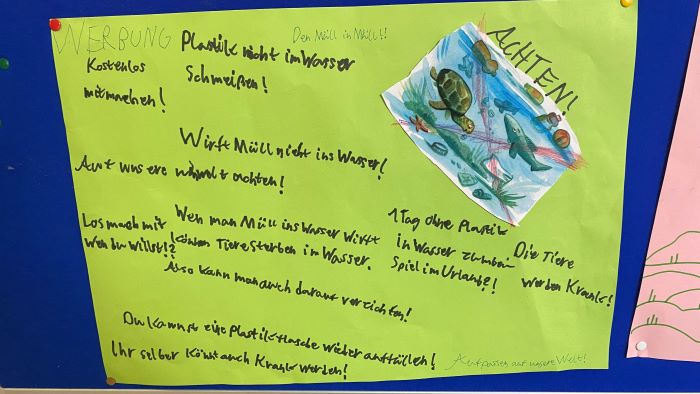 WERBUNG
Kostenlos
mitmachen!
Plastik nicht im Wasser
Schmeißen!
Den Müll in Müllt!
ACHTEN!
Wirft Müll nicht ins Wasser!
Auf unsere umwelt achten!
Los mach mit
Wen du willst!?
Wen man Müll ins Wasser wirft
können Tiere Sterben im Wasser.
Also kann man auch darauf verzichten!
1 Tag ohne Plastik
in Wasser zum bei
Spiel im Urlaub!
Die Tiere
werden Krank!
Du kannst eine Plastikflasche wieder auffüllen!
Ihr selber Könnt auch Krank werden!
Aufpassen auf unsere Welt!